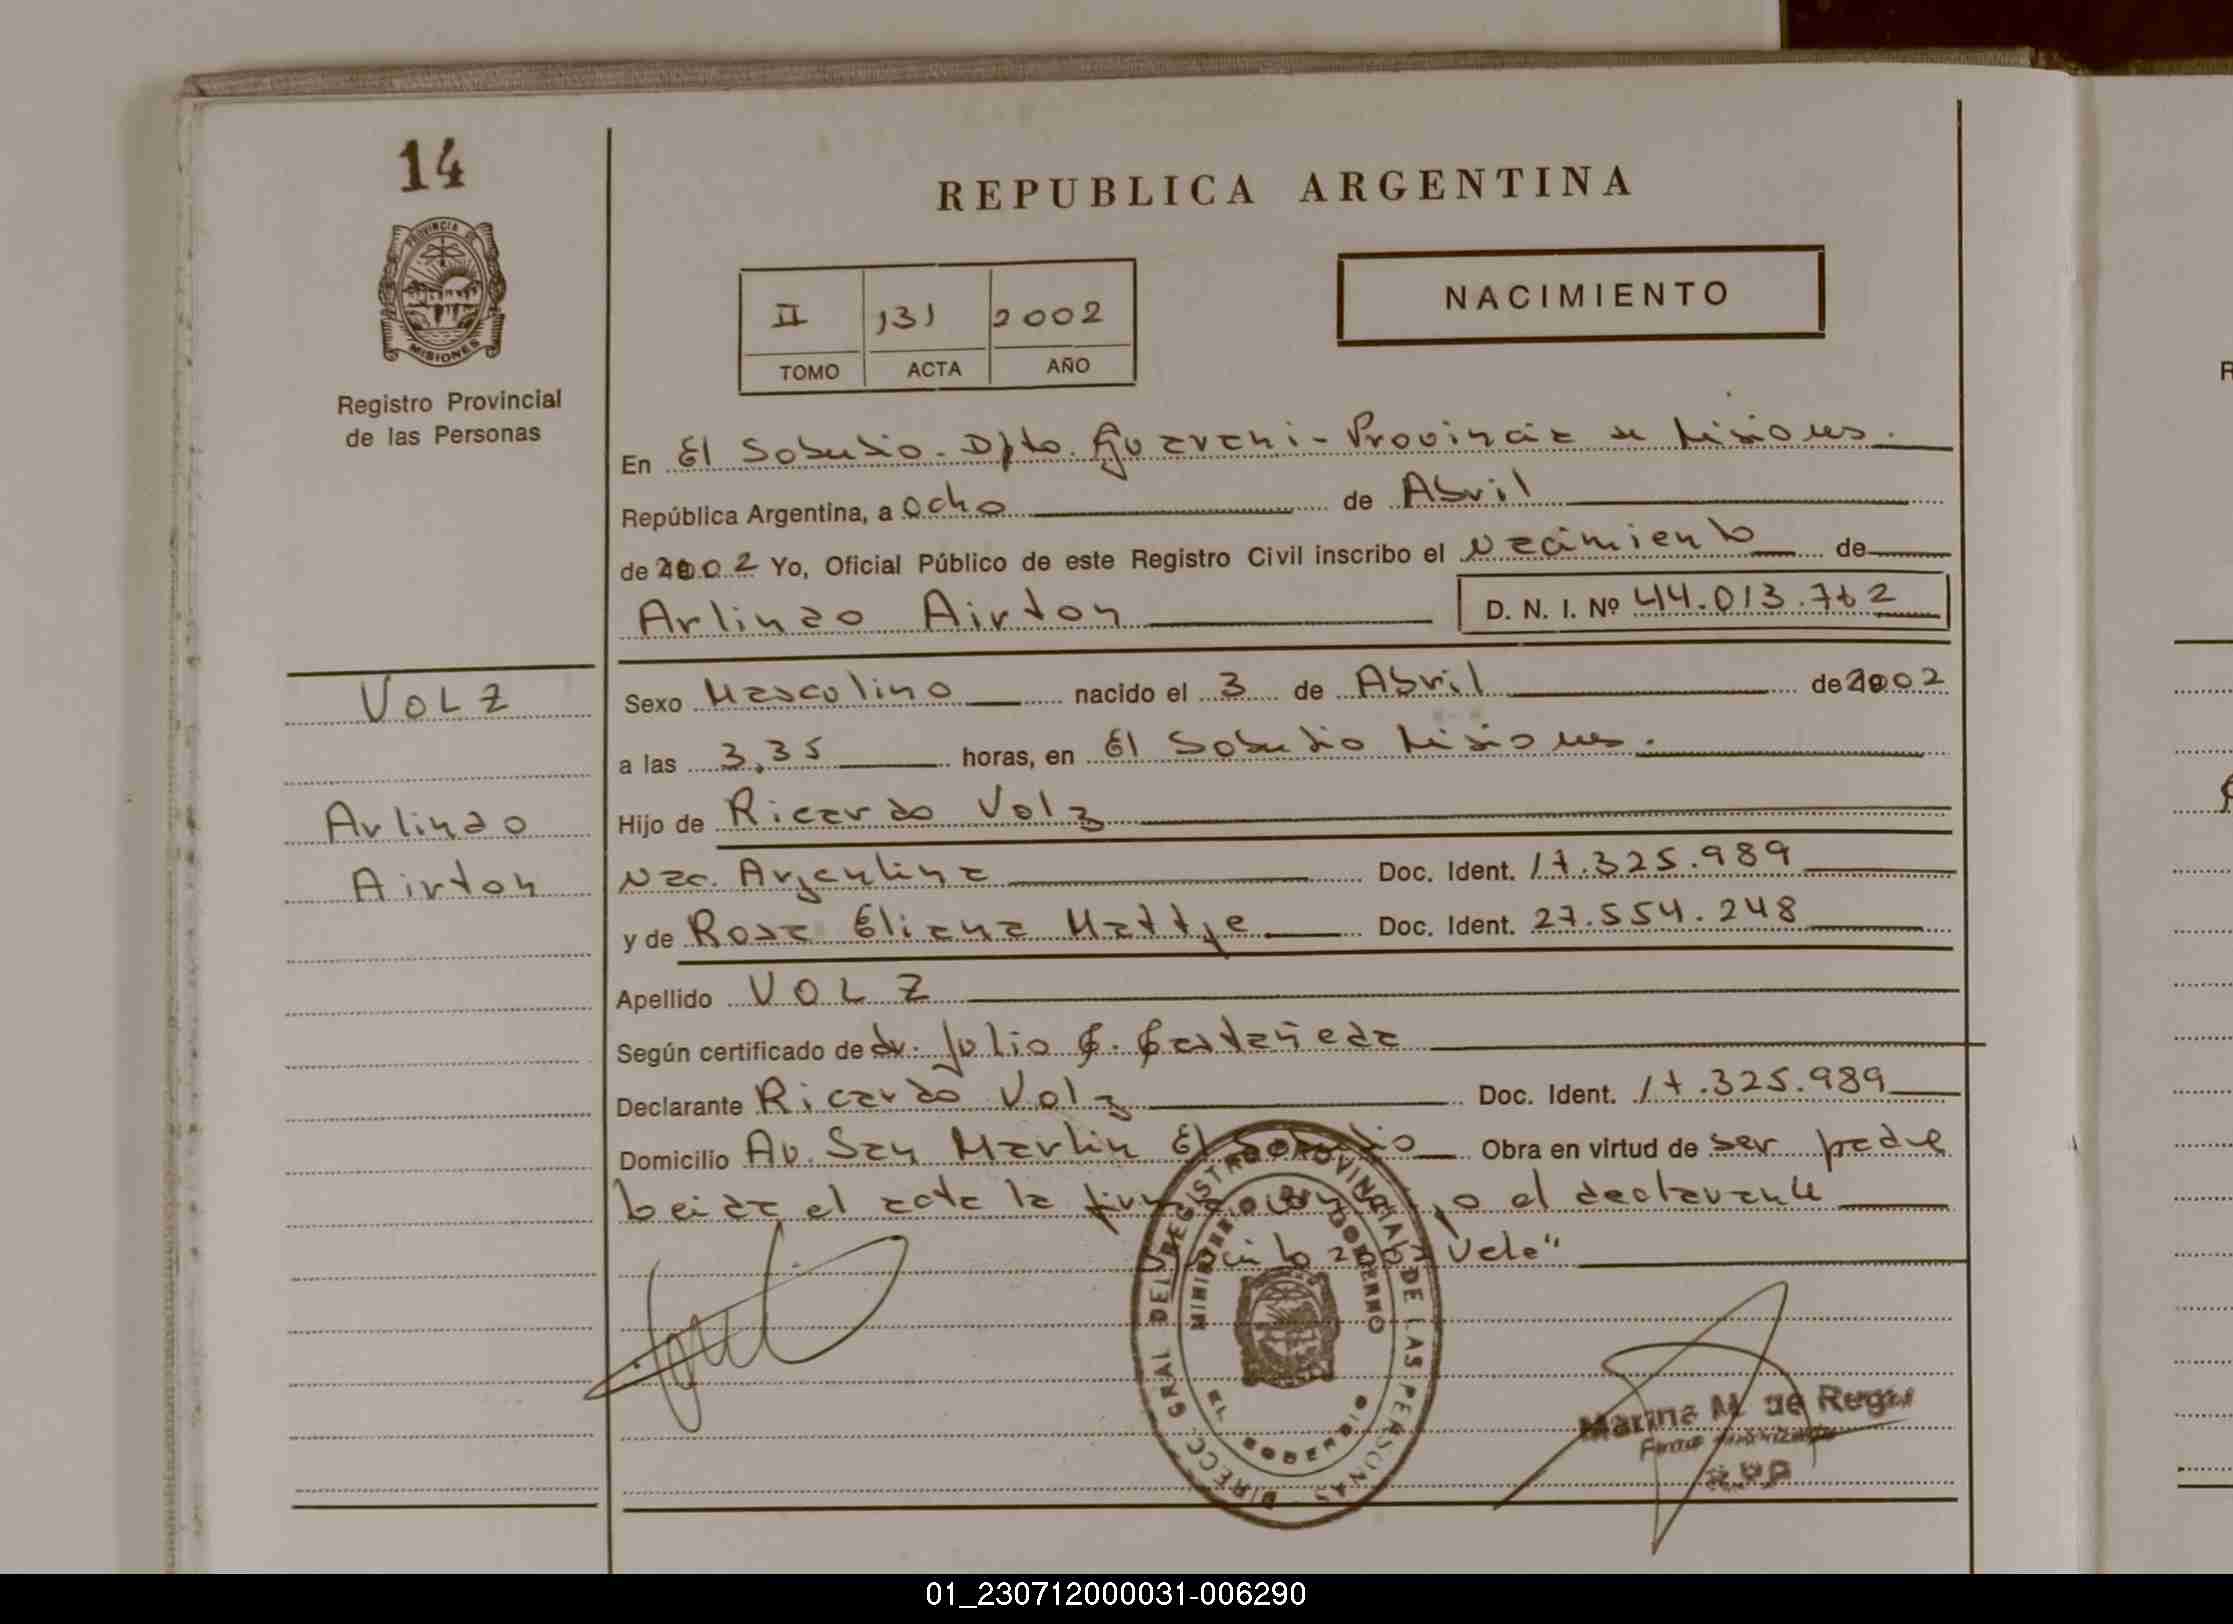 14
REPUBLICA ARGENTINA
PROVINCIA DE
MISIONES
Registro Provincial
de las Personas
II 131 2002
TOMO ACTA AÑO
NACIMIENTO
En El Soberbio. Dpto. Guarani - Provincia de Misiones.
República Argentina, a ocho de Abril
de 2002 Yo, Oficial Público de este Registro Civil inscribo el Nacimiento de
Arlindo Airton D. N. I. Nº 44.013.762
VOLZ
Sexo Masculino nacido el 3 de Abril de 2002
a las 3,35 horas, en El Soberbio Misiones.
Arlindo
Hijo de Ricardo Volz
Airton
Nac. Argentina Doc. Ident. 17.325.989
y de Rosa Eliana Mattje Doc. Ident. 27.554.248
Apellido VOLZ
Según certificado de dr. Julio C. Castañeda
Declarante Ricardo Volz Doc. Ident. 17.325.989
Domicilio Av. San Martin El Soberbio Obra en virtud de ser padre
Leida el acta la firma el declarante
Vele"
DIRECC. GRAL DEL REGISTRO PROVINCIAL DE LAS PERSONAS
MINISTERIO DE GOBIERNO
EL SOBERBIO
Marina M. de Rego
Firma
01_230712000031-006290